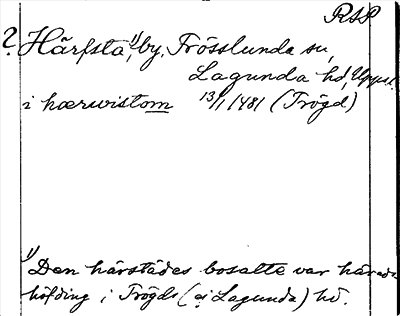 RSP
? Härfsta,¹⁾ by, Frösslunda sn,
Lagunda hd, Uppsl.
i hærwistom 13/1 1481 (Trögd)
¹⁾ Den härstädes bosatte var härads-
höfding i Trögds (ej Lagunda) hd.